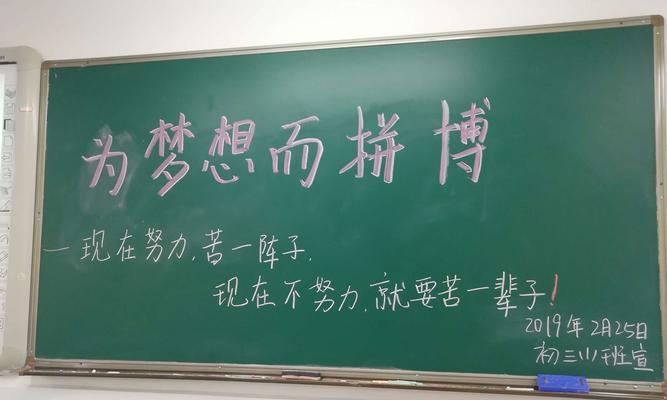 为梦想而拼博
一现在努力,苦一阵子,
现在不努力,就要苦一辈子!
2019年2月25日
初三(1)班宣